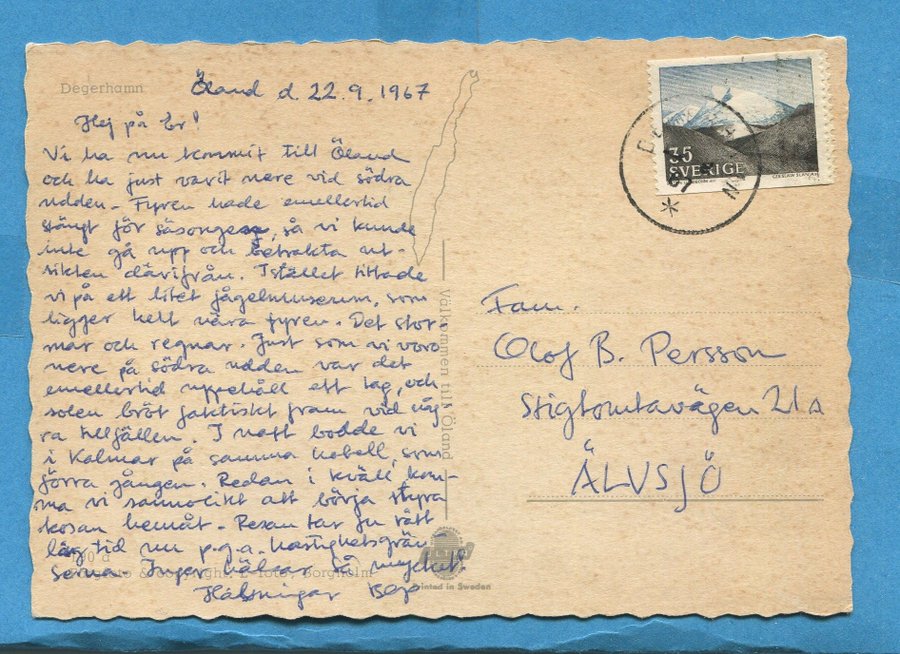 Degerhamn
Öland d. 22.9.1967
Hej på Er!
Vi ha nu kommit till Öland
och ha just varit nere vid södra
udden. Fyren hade emellertid
stängt för säsongen, så vi kunde
inte gå upp och betrakta ut-
sikten därifrån. Istället tittade
vi på ett litet fågelmuseum, som
ligger helt nära fyren. Det stor-
mar och regnar. Just som vi voro
nere på södra udden var det
emellertid uppehåll ett tag, och
solen bröt faktiskt fram vid någ-
ra tillfällen. I natt bodde vi
i Kalmar på samma hotell, som
förra gången. Redan i kväll kom-
ma vi sannolikt att börja styra
kosan hemåt. Resan tar ju rätt
lång tid nu p.g.a. hastighetsgrän-
serna. Inger hälsar så mycket.
Hälsningar
Foto & Copyright: Borgholm
Välkommen till Öland
Printed in Sweden
35
SVERIGE
CZESLAW SLANIA
Fam.
Olof B. Persson
Stigtomtavägen 21A
ÄLVSJÖ